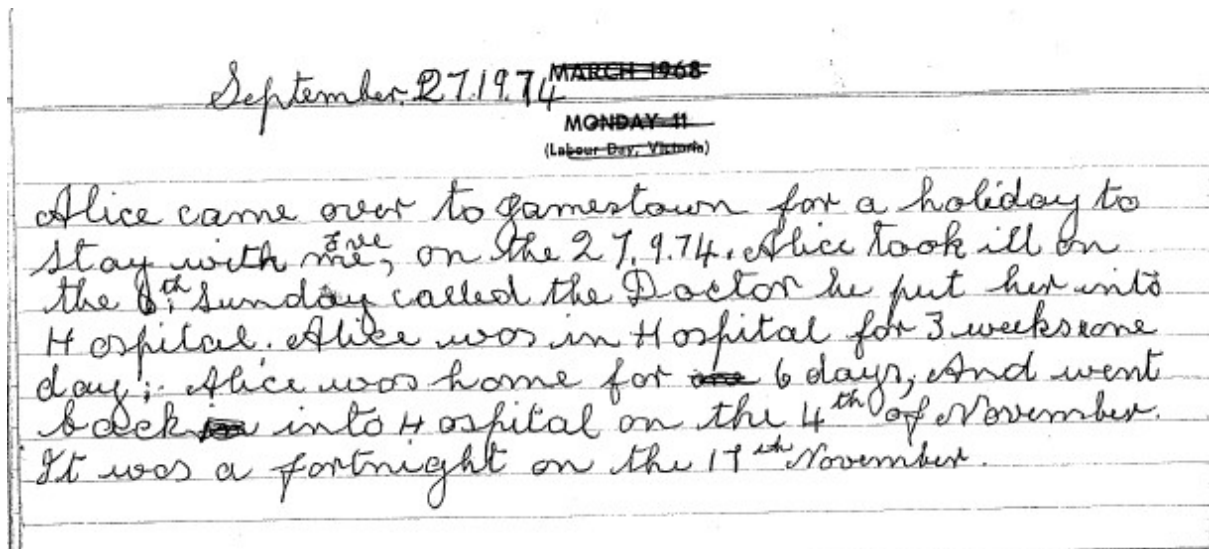 MARCH 1968
September. 27.19.74
MONDAY 11
(Labour Day, Victoria)
Alice came over to Jamestown for a holiday to
stay with me, on the 27.9.74. Alice took ill on
the 6th. Sunday called the Doctor he put her into
Hospital. Alice was in Hospital for 3 weeks one
day; Alice was home for 6 days, And went
back into Hospital on the 4th of November.
It was a fortnight on the 17th November.